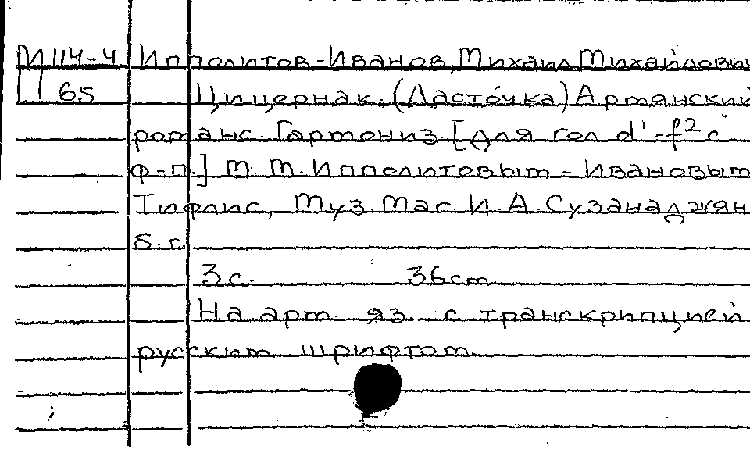 М 114-4 Ипполитов-Иванов, Михаил Михайлович
65 Цицернак. (Ласточка) Армянский
романс. Гармониз [для гол d'-f² с
ф-п.] М. М. Ипполитовым-Ивановым
Тифлис, Муз. маг И. А. Сузанаджян
б. г.
3 с. 36 cm
На арм. яз. с транскрипцией
русским шрифтом